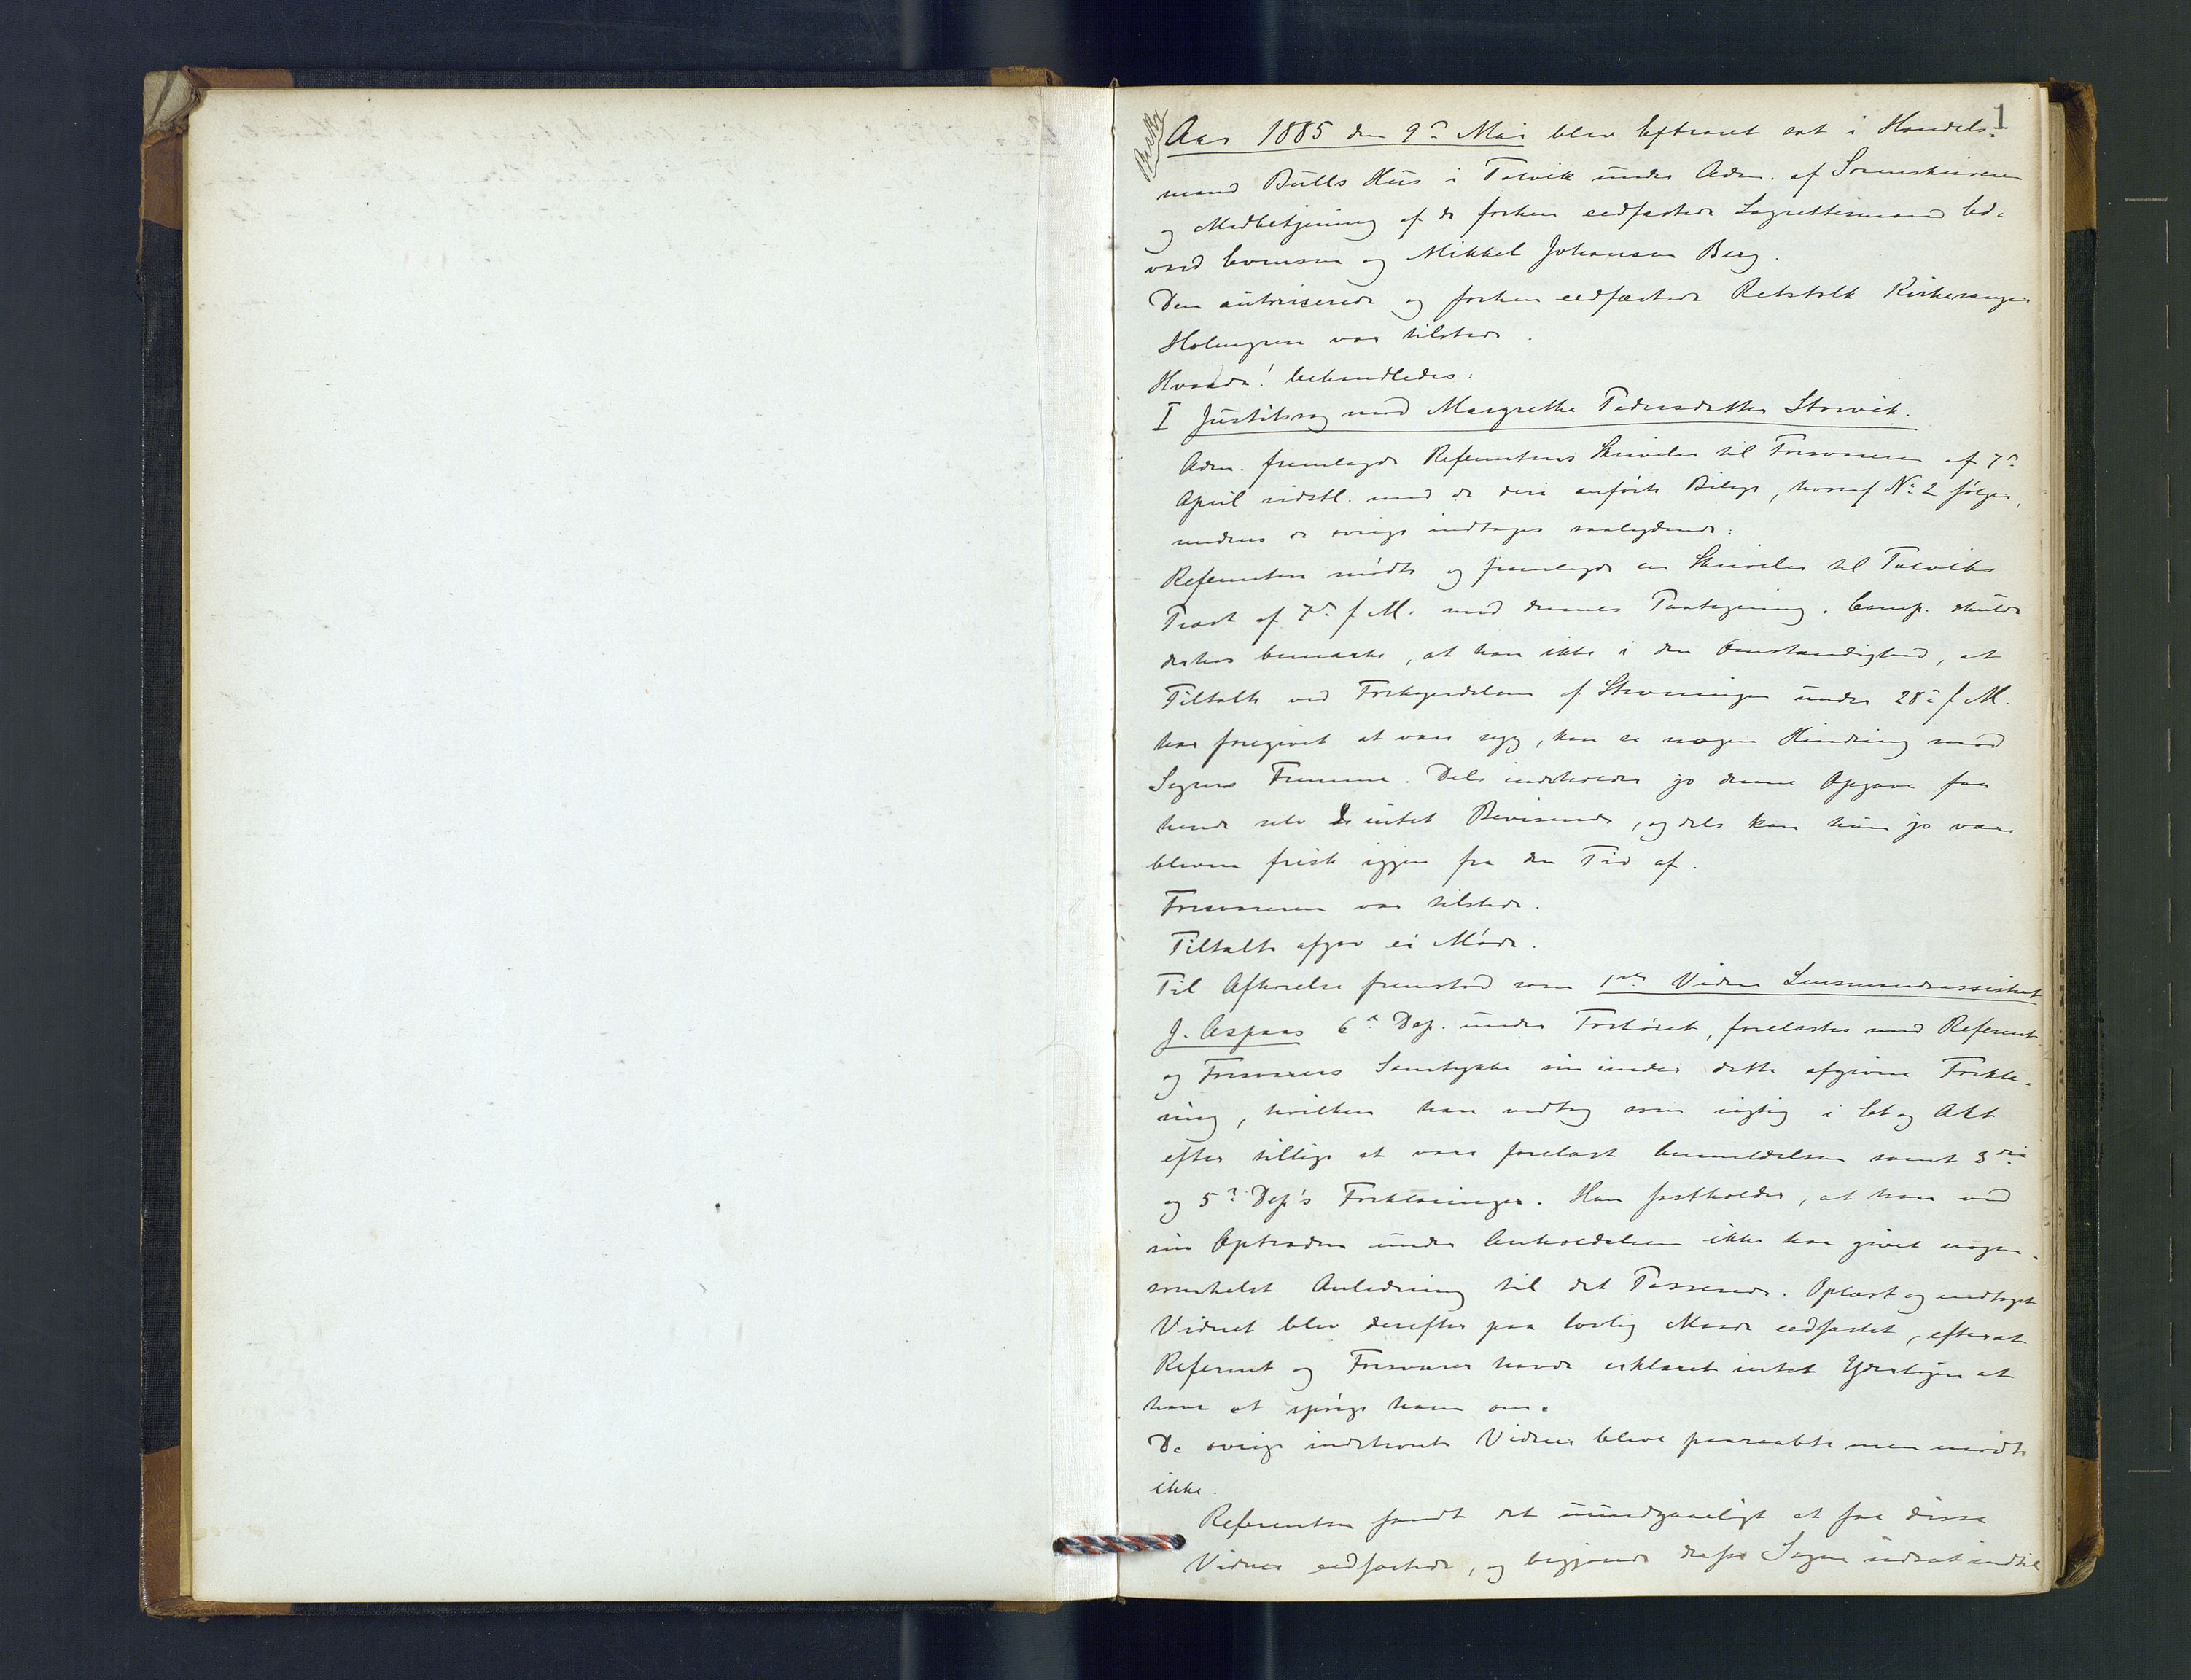 1
Aar 1885 den 9de Mai blev Extraret sat i Handels-
mand Bulls Hus i Talvik under Adm. af Sorenskriveren
og Medbetjening af de forhen eedfæstede Lagrettesmænd Ed-
vard Evensen og Mikkel Johansen Berg.
Den autoriserede og forhen eedfæstede Retstolk Kirkesanger
Holmgren var tilstede.
Hvorda! behandledes:
I Justitssag mod Margrethe Pedersdatter Storvik.
Adm. fremlagde Referentens Skrivelse til Forsvareren af 7de
April sidstl. med de deri anførte Bilage, hvoraf No 2 følger,
medens de øvrige indtages saalydende:
Referenten mødte og fremlagde en Skrivelse til Talviks
Præst af 7de f. M. med dennes Paategning. Comp. skulde
derhos bemærke, at han ikke i den Omstændighed, at
Tiltalte ved Forkyndelsen af Stævningen under 28de f. M.
har foregivet at være syg, kan se nogen Hindring mod
Sagens Fremme. Dels indeholder jo denne Opgave fra
hende selv intet Bevisende, og dels kan hun jo være
bleven frisk igjen fra den Tid af.
Forsvareren var tilstede.
Tiltalte afgav ei Møde.
Til Afhørelse fremstod som 1ste Vidne Lensmandsassistent
J. Aspaas 6te Dep. under Forhøret, forelæstes med Referent
og Forsvarers Samtykke sin under dette afgivne Forkla-
ring, hvilken han vedtog som rigtig i Et og Alt
efter tillige at være forelæst Anmeldelsen samt 3die
og 5te Dep's Forklaringer. Han fastholder, at han ved
sin Optræden under Anholdelsen ikke har givet nogen-
somhelst Anledning til det Passerede. Oplæst og vedtaget
Vidnet blev derefter paa lovlig Maade eedfæstet, efterat
Referent og Forsvarer havde erklæret intet Yderligere at
have at spørge ham om.
De øvrige indstevnte Vidner bleve paaraabte men mødte
ikke.
Referenten fandt det uundgaaeligt at faa disse
Vidner eedfæstede, og begjærede derfor Sagen udsat indtil